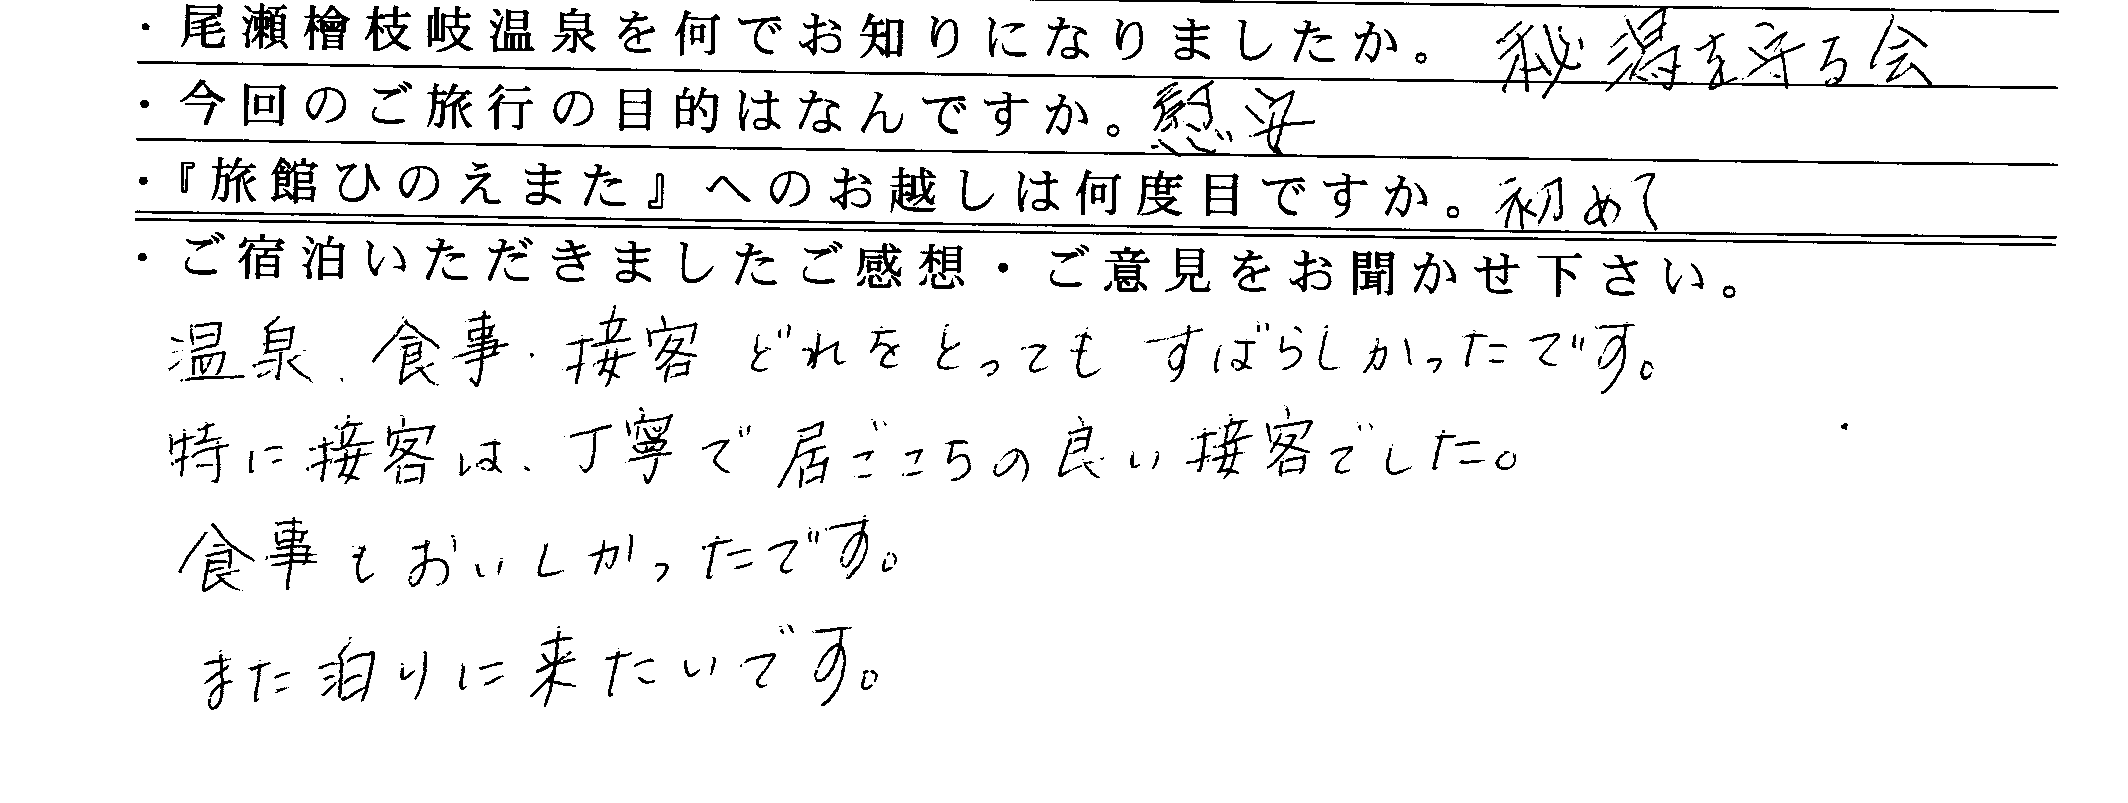 ・尾瀬檜枝岐温泉を何でお知りになりましたか。 秘湯を守る会
・今回のご旅行の目的はなんですか。慰安
・『旅館ひのえまた』へのお越しは何度目ですか。初めて
・ご宿泊いただきましたご感想・ご意見をお聞かせ下さい。
温泉、食事・接客 どれをとっても すばらしかったです。
特に接客は、丁寧で居ごこちの良い接客でした。
食事もおいしかったです。
また泊りに来たいです。